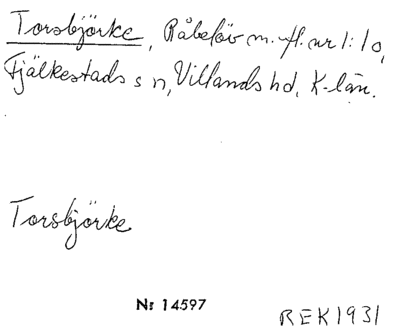 Torsbjörke, Råbelöv m. fl. nr 1:10,
Fjälkestads sn, Villands hd, K-län.
Torsbjörke
Nr 14597
REK 1931